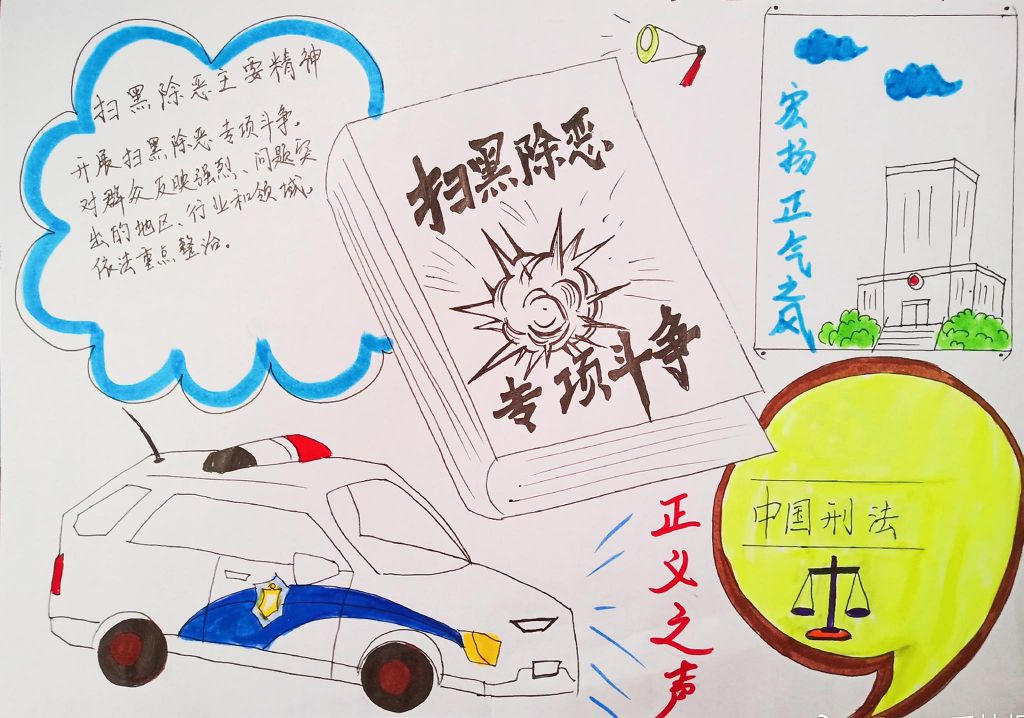 扫黑除恶主要精神
开展扫黑除恶专项斗争。
对群众反映强烈、问题突
出的地区、行业和领域。
依法重点整治。
扫黑除恶
专项斗争
宏扬正气之风
中国刑法
正义之声